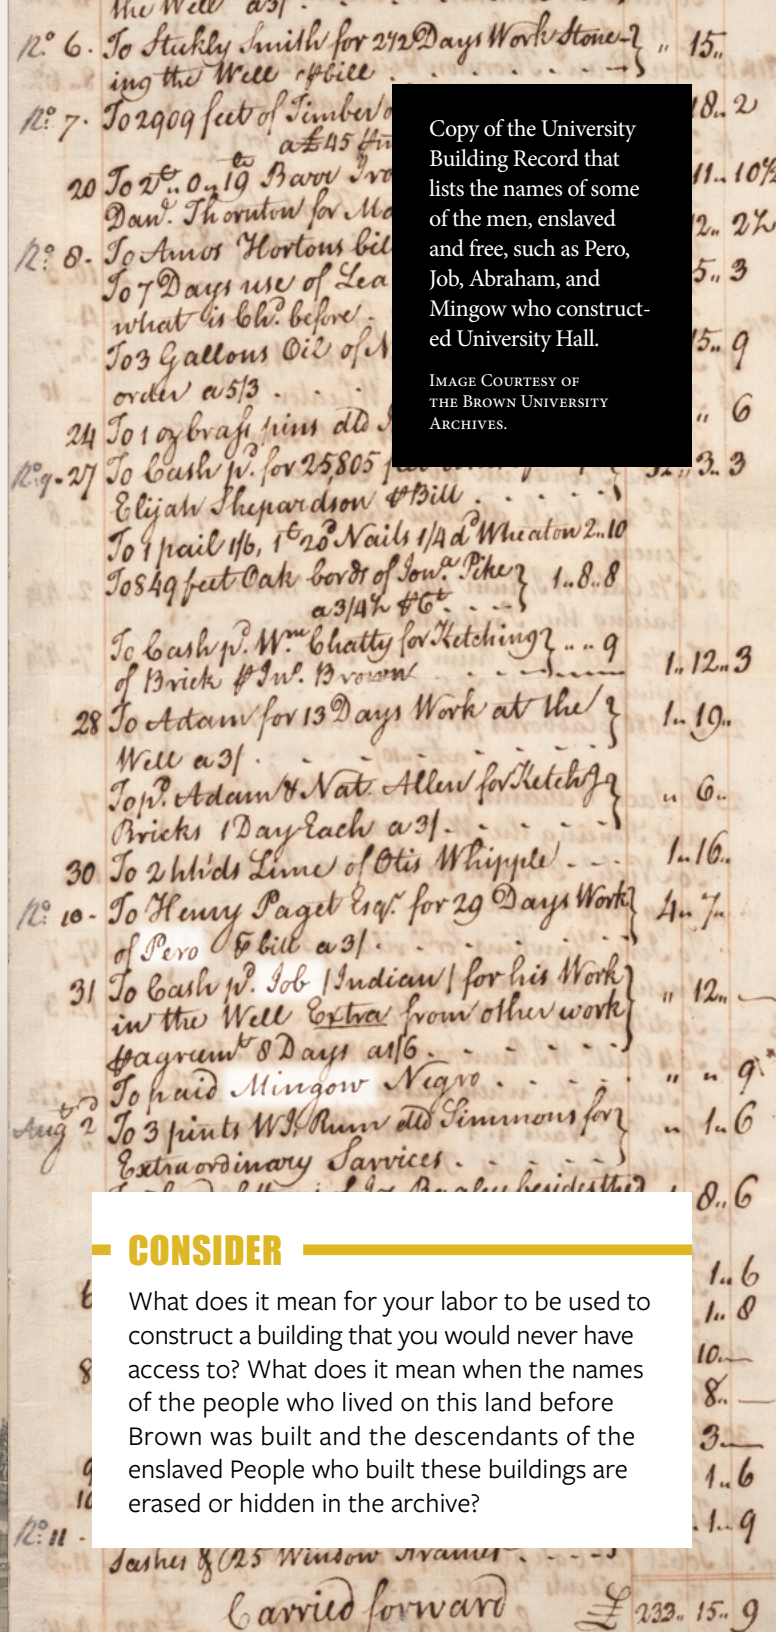 the Well a 3/.
No 6. To Stukly Smith for 2 1/2 Days Work Stone- " 15"
ing the Well ⅌ bill
No 7. To 2909 feet of Timber 18" 2
a £45
20 To 2 0 19 Barr Iro 11" 10 1/2
Danl. Thornton for Mo 2" 2 1/2
No 8- To Amos Hortons bil 5" 3
To 7 Days use of Lea
what is Chd. before.
To 3 Gallons Oil of N 15" 9
order a 5/3
24 To 1 oz brass pins dld " 6
No 9-27 To Cash pd. for 25,805 3" 3
Elijah Shepardson ⅌ Bill
To 1 pail 1/6, 20d Nails 1/4 dd Wheaton 2"10
To 849 feet Oak bords of Jona. Pike 1"8"8
a 3/4 1/2
To Cash pd. Wm Chatty for Ketching " " 9
of Brick ⅌ Jno. Brown 1" 12" 3
28 To Adam for 13 Days Work at the 1" 19"
Well a 3/.
To pd. Adam & Nat. Allen for Ketchg " 6"
Bricks 1 Day Each a 3/.
30 To 2 hhds Lime of Otis Whipple 1" 16"
No 10- To Henry Paget Esqr. for 29 Days Work 4" 7"
of Pero ⅌ bill a 3/.
31 To Cash pd. Job /Indian/ for his Work " 12"
in the Well Extra from other work
⅌ agreemt 8 Days a 1/6
To paid Mingow Negro " " 9
Aug 2d To 3 pints W.I. Rum dld Simmons for " 1" 6
Extraordinary Sarvices
8" 6
1" 6
1" 8
8 10"
8"
3"
9 1" 6
10
No 11 - 1" 9
Sashes & (25 Window Frames
Carried forward £ 233" 15" 9
Copy of the University
Building Record that
lists the names of some
of the men, enslaved
and free, such as Pero,
Job, Abraham, and
Mingow who construct-
ed University Hall.
Image Courtesy of
the Brown University
Archives.
CONSIDER
What does it mean for your labor to be used to
construct a building that you would never have
access to? What does it mean when the names
of the people who lived on this land before
Brown was built and the descendants of the
enslaved People who built these buildings are
erased or hidden in the archive?